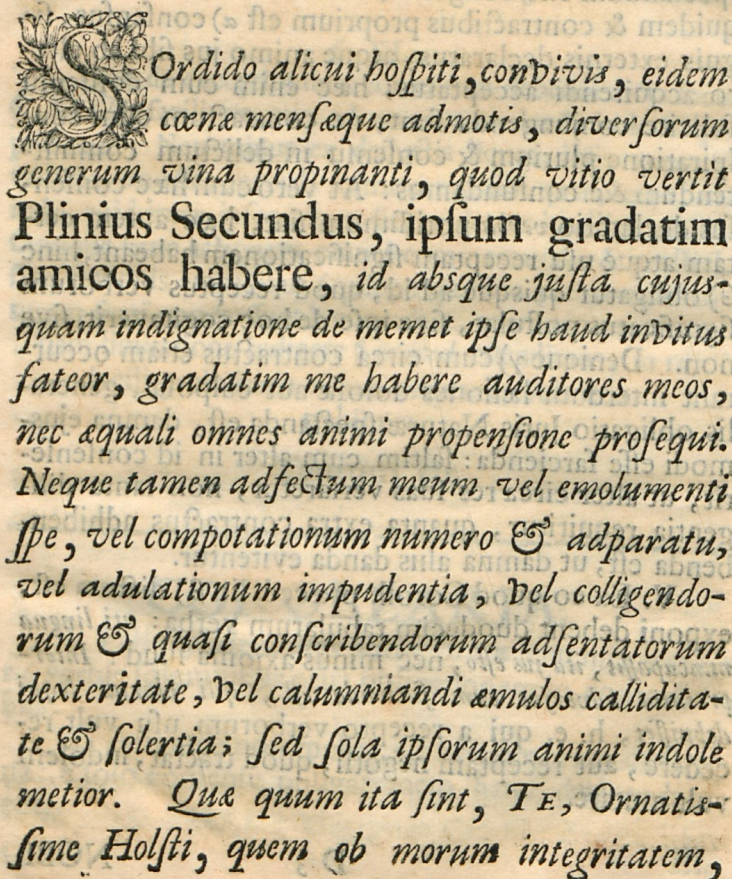 SOrdido alicui hoſpiti, convivis, eidem
cœnæ menſæque admotis, diverſorum
generum vina propinanti, quod vitio vertit
Plinius Secundus, ipſum gradatim
amicos habere, id absque juſta cujus-
quam indignatione de memet ipſe haud invitus
fateor, gradatim me habere auditores meos,
nec æquali omnes animi propenſione proſequi.
Neque tamen adfectum meum vel emolumenti
ſpe, vel compotationum numero & adparatu,
vel adulationum impudentia, vel colligendo-
rum & quaſi conſcribendorum adſentatorum
dexteritate, vel calumniandi æmulos callidita-
te & ſolertia; ſed ſola ipſorum animi indole
metior. Quæ quum ita ſint, TE, Ornatis-
ſime Holſti, quem ob morum integritatem,